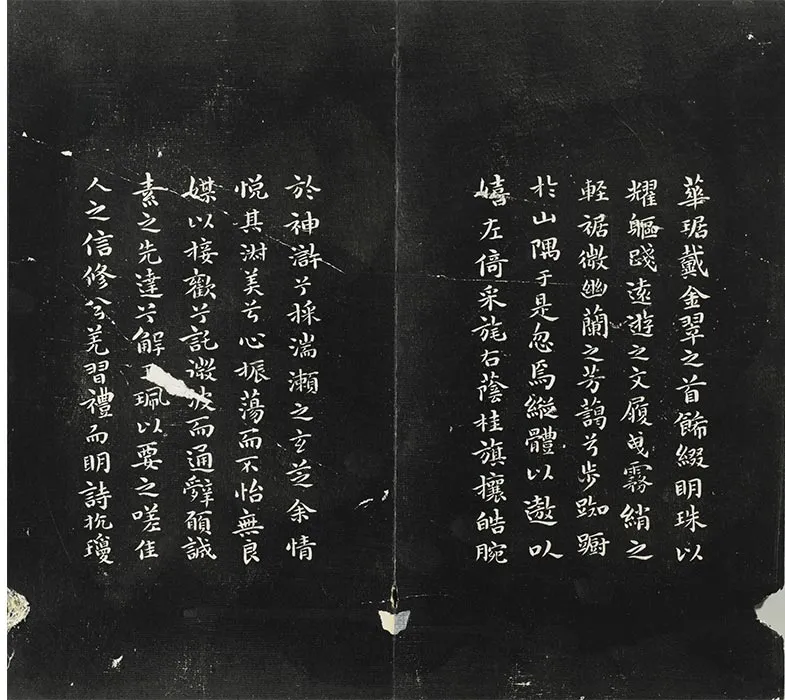 華琚戴金翠之首餙綴明珠以
耀軀踐遠遊之文履曵霧綃之
輕裾微幽蘭之芳藹兮步踟蹰
扵山隅于是忽焉縱體以遨以
嬉左倚采旄右蔭桂旗攘皓腕
於神滸兮採湍瀨之玄芝余情
悅其淑美兮心振蕩而不怡無良
媒以接歡兮託微波而通辭願誠
素之先達兮解珮以要之嗟佳
人之信修兮羌習禮而明詩抗瓊